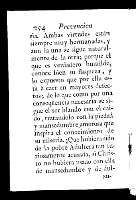 294 Prevencion
ria. Ambas virtudes estàn
siempre muy hermanadas, y
aun la una se sigue natural-
mente de la otra; porque el
que es verdadero humilde,
conoce bien su flaqueza, y
lo expuesto que por ella es-
tà à caer en mayores defec-
tos; de lo que como por una
consequencia necesaria se si-
gue el ser blando con el cai-
do, tratandolo con la piedad
y mansedumbre amorosa que
inspira el conocimiento de
su miseria. ¿Que hubiera sido
de la pobre Adultera tan ra-
biosamente acusada, si Chris-
to no hubiera usado con ella
de mansedumbre y de dul-
zu-